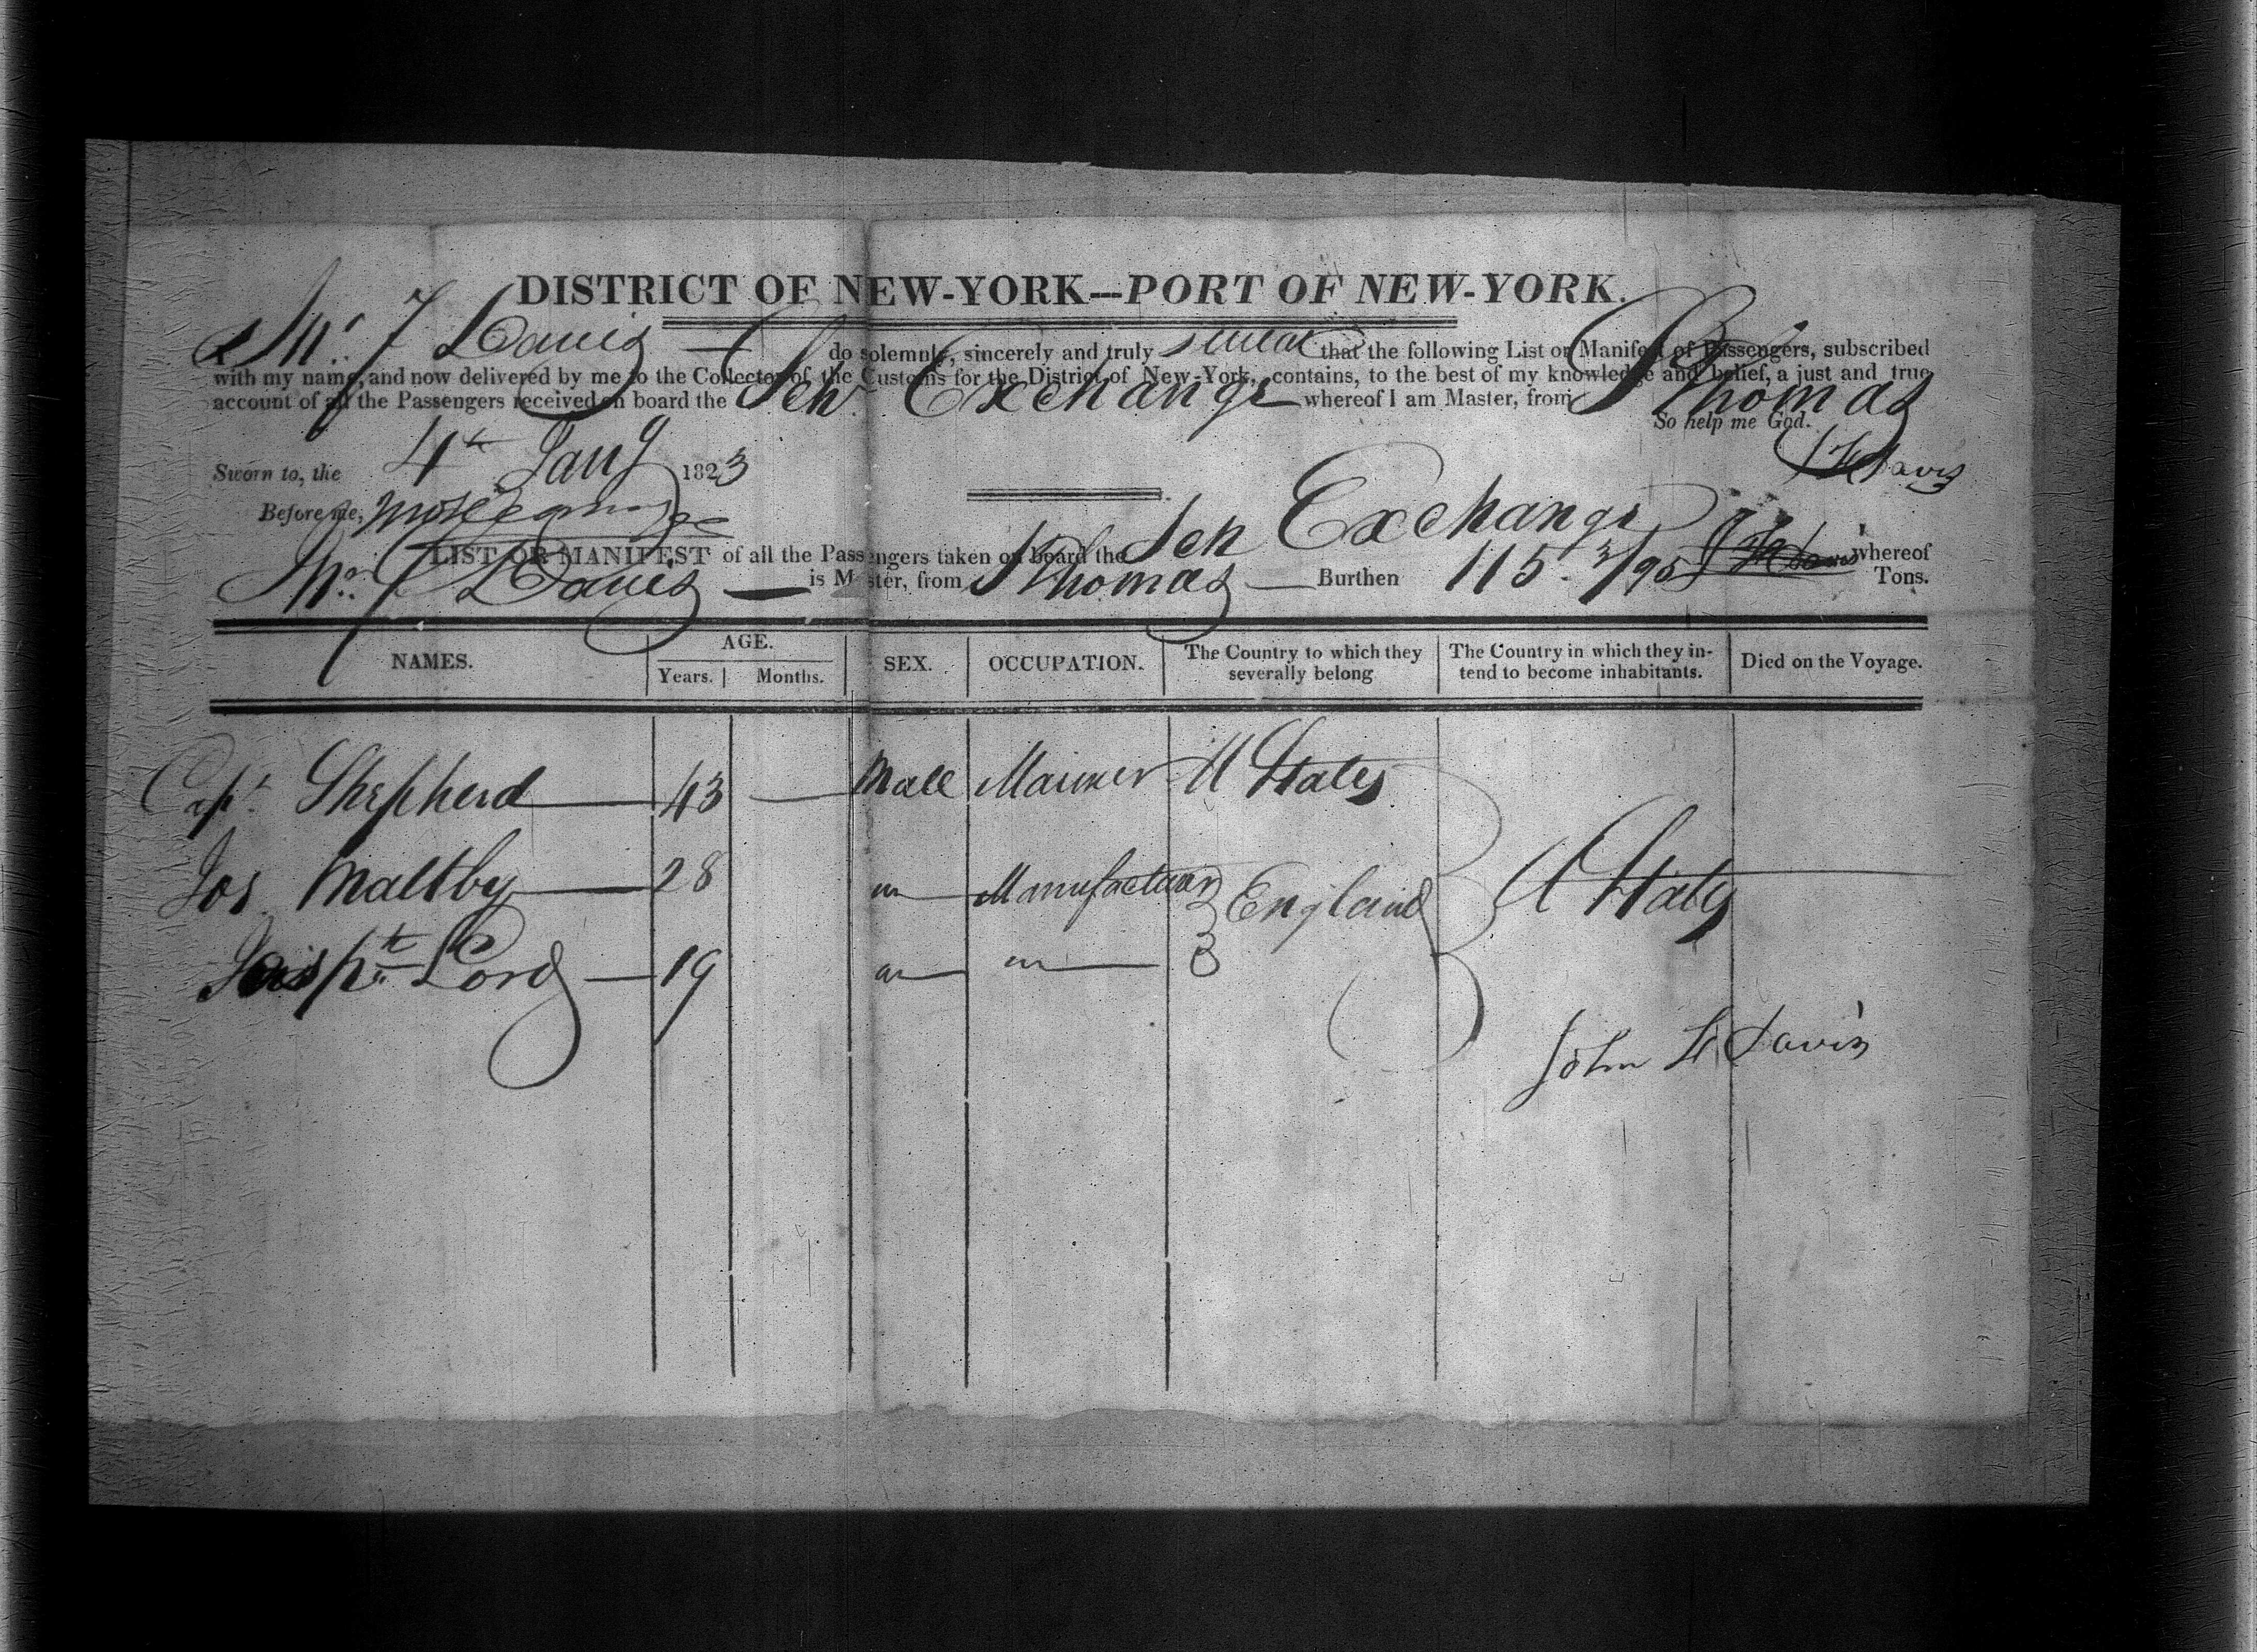 DISTRICT OF NEW-YORK---PORT OF NEW-YORK.
I Jn°. F Davis — do solemnly, sincerely and truly swear that the following List or Manifest of Passengers, subscribed
with my name, and now delivered by me to the Collector of the Customs for the District of New-York, contains, to the best of my knowledge and belief, a just and true
account of all the Passengers received on board the Schr Exchange whereof I am Master, from St Thomas
So help me God.
Sworn to, the 4th Jany 1823
J F Davis
Before me,
LIST OR MANIFEST of all the Passengers taken on board the Sch Exchange whereof
Jn°. F Davis — is Master, from St Thomas — Burthen 115 3/95 Tons.
NAMES. AGE. Years. Months. SEX. OCCUPATION. The Country to which they severally belong The Country in which they intend to become inhabitants. Died on the Voyage.
Capt. Shepherd — 43 — Male Mariner U States
Jos Maltby — 28 " Manufacturer England U States
Lord — 19 " "
John F Davis